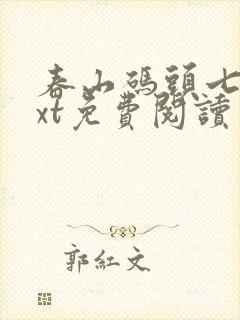 春山碼頭七
xt免費閱讀
郭紅文